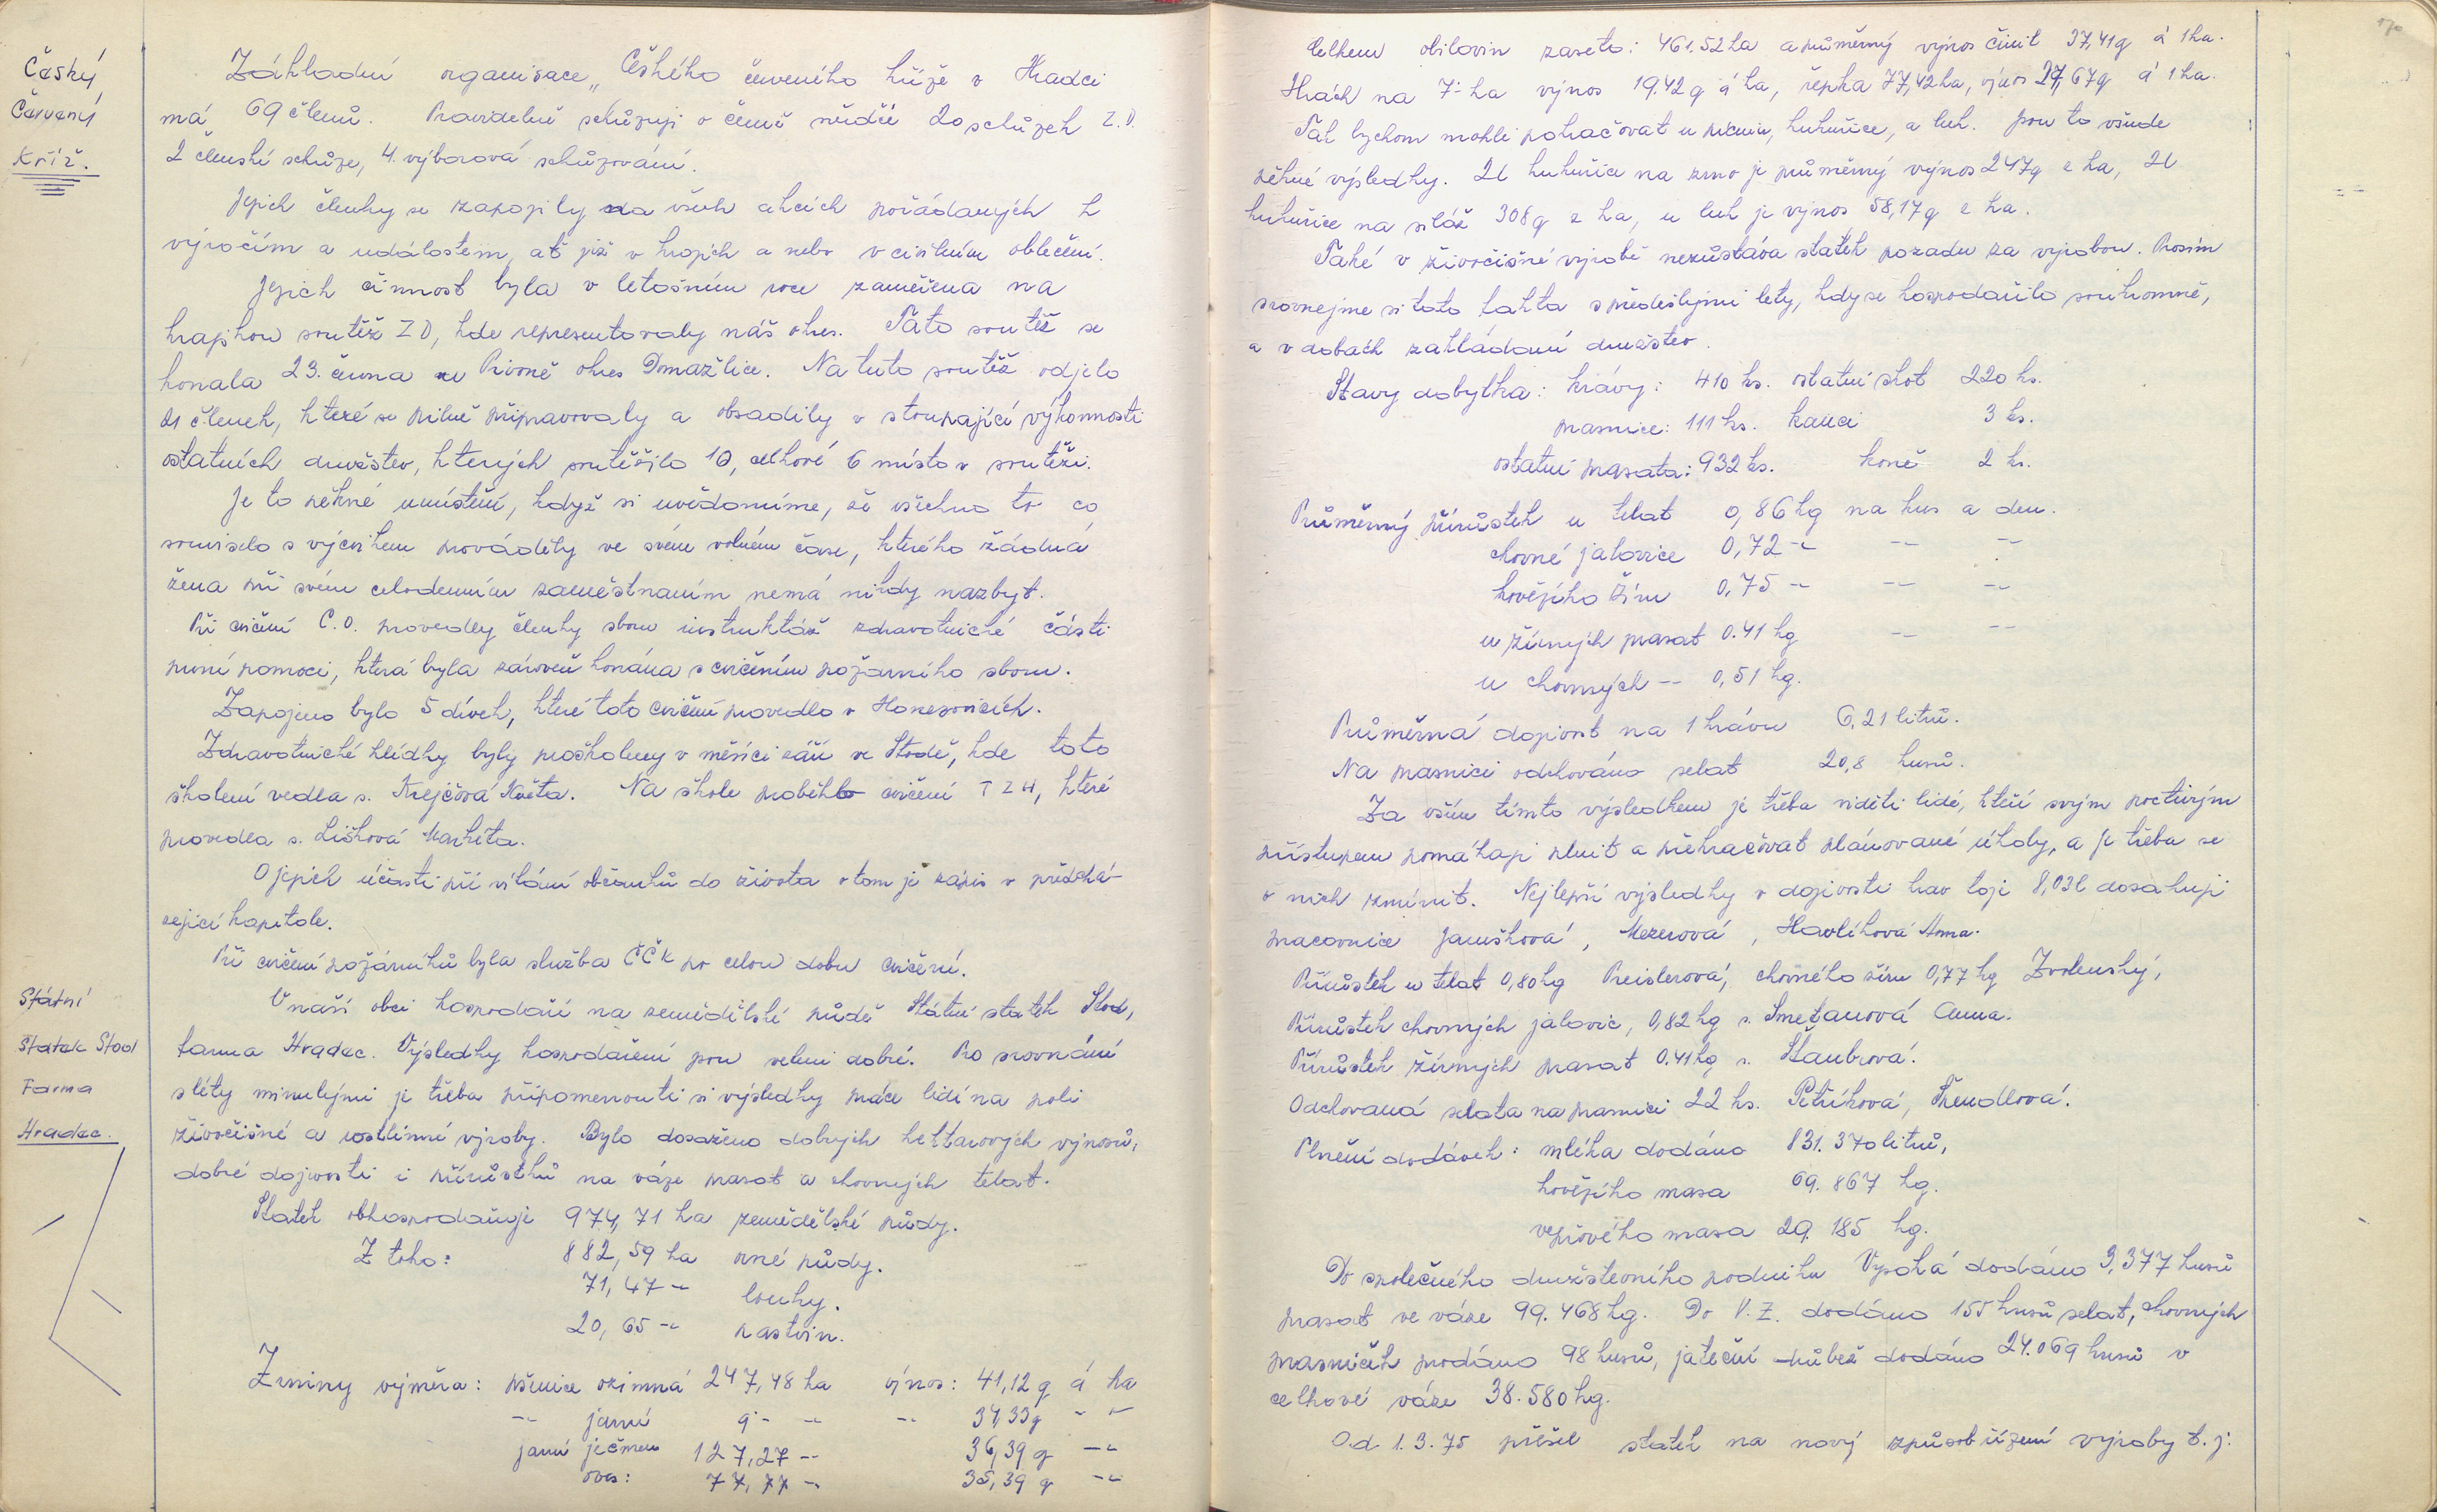 Český
Červený
Kříž.
Základní organisace „Českého červeného kříže v Hradci
má 69 členů. Pravidelně schůzuji o čemž svědčí 20 schůzek Z.D.
2 členské schůze, 4. výborová schůzování.
Jejich členky se zapojily na všech akcích pořádaných k
výročím a událostem, ať již v krojích a nebo v civilním oblečení.
Jejich činnost byla v letošním roce zaměřena na
krajskou soutěž ZD, kde representovaly náš okres. Tato soutěž se
konala 23. června v Pivoně okres Domažlice. Na tuto soutěž odjelo
21 členek, které se pilně připravovaly a obsadily v stoupající výkonnosti
ostatních družstev, kterých soutěžilo 10, celkové 6 místo v soutěži.
Je to pěkné umístění, když si uvědomíme, že všechno to co
souviselo s výcvikem prováděly ve svém volném čase, kterého žádná
žena při svém celodenním zaměstnaním nemá nikdy nazbyt.
Při cvičení C.O. provedly členky sboru instruktáž zdravotnické části
první pomoci, která byla zároveň konána s cvičením požárního sboru.
Zapojeno bylo 5 dívek, které toto cvičení provedlo v Honezovicích.
Zdravotnické hlídky byly proškoleny v měsíci září ve Stodě, kde toto
školení vedla s. Krejčová Květa. Na škole proběhlo cvičení TZH, které
provedla s. Lišková Markéta.
O jejich účasti při vítání občánků do života o tom je zápis v předchá-
zející kapitole.
Při cvičení požárníků byla služba ČČK po celou dobu cvičení.
Státní
Statek Stod
Farma
Hradec.
V naší obci hospodaří na zemědělské půdě Státní statek Stod,
farma Hradec. Výsledky hospodaření jsou velmi dobré. Pro srovnání
s léty minulými je třeba připomenouti si výsledky práce lidí na poli
živočišné a rostlinné výroby. Bylo dosaženo dobrých hektarových výnosů,
dobré dojivosti i přírůstků na váze prasat a chovných telat.
Statek obhospodařuje 974,71 ha zemědělské půdy.
Z toho: 882,59 ha orné půdy.
71,47 -"- louky.
20,65 -"- pastvin.
Zrniny výměra: pšenice ozimná 247,48 ha výnos: 41,12 q á ha
-"- jarní 9·- -"- -"- 34,33 q - "-
jarní ječmen 127,27 -"- 36,39 q -"-
oves: 77,77 -"- 35,39 q -"-
Celkem obilovin zaseto: 461.52 ha a průměrný výnos činil 37,41 q á 1 ha.
Hrách na 7·- ha výnos 19.42 q á ha, řepka 77,42 ha, výnos 27,67 q á 1 ha.
Tak bychom mohli pokračovat u pícnin, kukuřice, a luk. Jsou to všude
pěkné výsledky. U kukuřice na zrno je průměrný výnos 247 q z ha, U
kukuřice na siláž 308 q z ha, u luk je výnos 58,17 q z ha.
Také v živočišné výrobě nezůstáva statek pozadu za výrobou. Prosím
srovnejme si tato fakta s předešlými lety, kdy se hospodařilo soukromně,
a v dobách zakládaní družstev.
Stavy dobytka: krávy: 410 ks. ostatní skot 220 ks.
prasnice: 111 ks. kanci 3 ks.
ostatní prasata: 932 ks. koně 2 ks.
Průměrný přírůstek u telat 0,86 kg na kus a den.
chovné jalovice 0,72 -"- -"- -"-
hovězího žíru 0,75 -"- -"- -"-
u žírných prasat 0.41 kg -"- -"-
u chovných -"- 0,51 kg.
Průměrná dojivost na 1 krávu 6,21 litrů.
Na prasnici odchováno selat 20,8 kusů.
Za vším tímto výsledkem je třeba viděti lidé, kteří svým poctivým
přístupem pomáhají plnit a překračovat plánované úkoly, a je třeba se
o nich zmínit. Nejlepší výsledky v dojivosti krav toji 8,03 l dosahují
pracovnice Janušková, Mezerová, Havlíková Anna.
Přírůstek u telat 0,80 kg Preislerová, chovného žíru 0,77 kg Zvolenský,
Přírůstek chovných jalovic, 0,82 kg s. Smetanová Anna.
Přírůstek žírných prasat 0.41 kg s. Štaubrová.
Odchovaná selata na prasnici 22 ks. Petříková, Trendlová.
Plnění dodávek: mléka dodáno 831.370 litrů,
hovězího masa 69.867 kg.
vepřového masa 29.185 kg.
Do společného družstevního podniku Vysoká dodáno 3,377 kusů
prasat ve váze 99.468 kg. Do V.Z. dodáno 155 kusů selat, chovných
prasniček prodáno 98 kusů, jateční drůbež dodáno 24.069 kusů v
celkové váze 38.580 kg.
Od 1.3.75 přešel statek na nový způsob řízení výroby t.j.